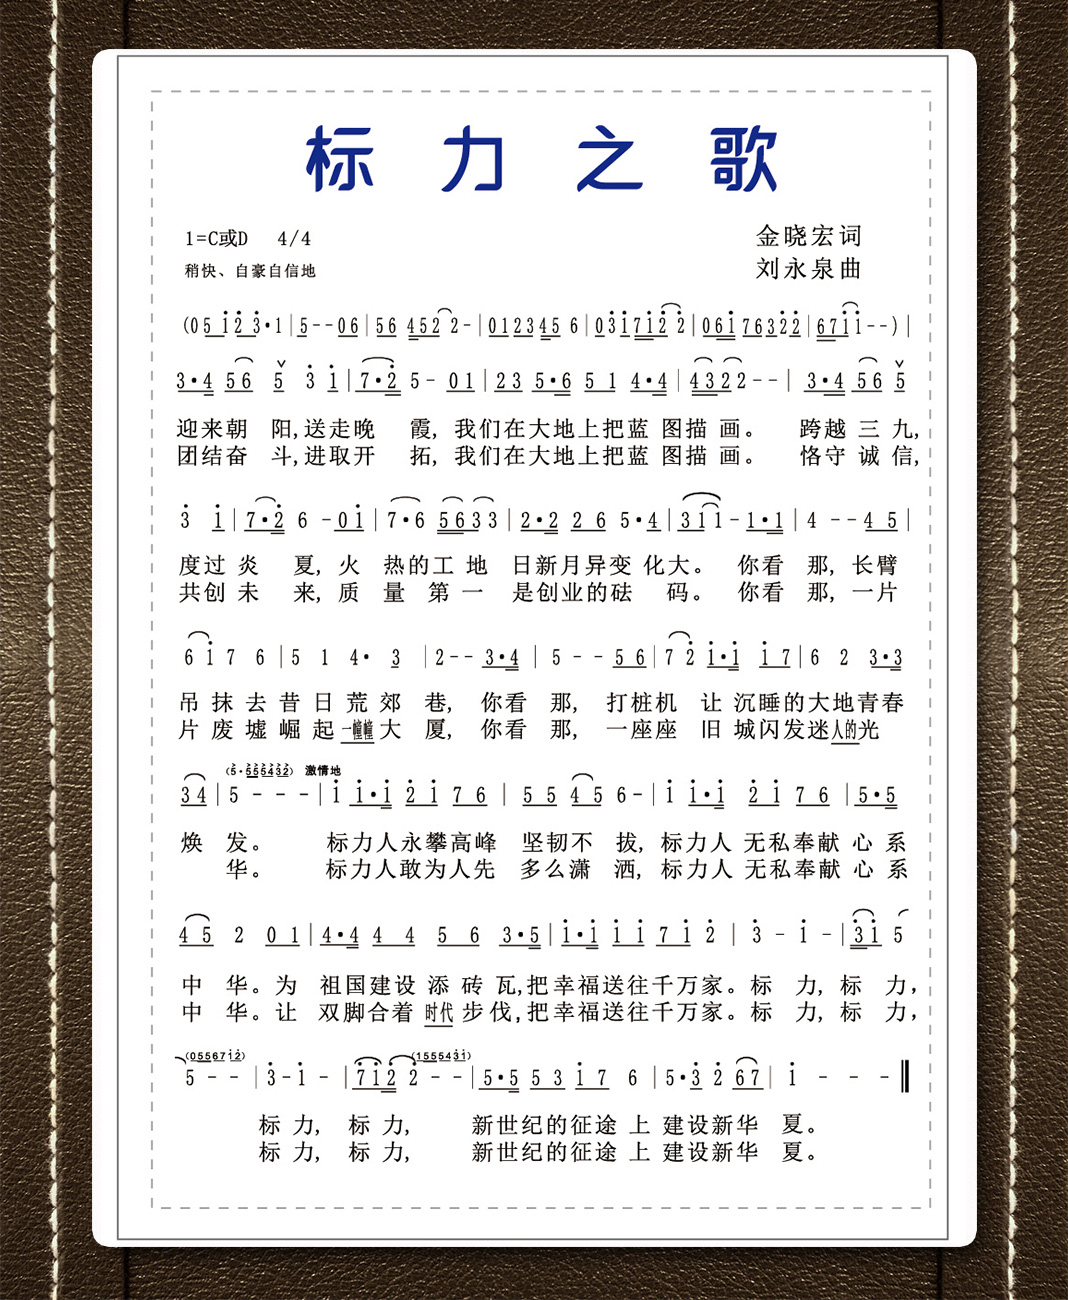 标力之歌
1=C或D 4/4
金晓宏词
稍快、自豪自信地
刘永泉曲
(05 i2 3·1|5--06|56 4522-|0123456|03i7i22|06i76322|67ii--)|
3·4 56 5 3 i|7·2 5-01|23 5·6 51 4·4|4322--|3·4 56 5
迎来朝 阳,送走晚 霞, 我们在大地上把蓝 图描 画。 跨越 三 九,
团结奋 斗,进取开 拓, 我们在大地上把蓝 图描 画。 恪守 诚 信,
3 i|7·2 6 -0i|7·6 5633|2·2 26 5·4|3ii-1·1|4 --45|
度过 炎 夏, 火 热的工 地 日新月异变 化大。 你看 那, 长臂
共创 未 来, 质 量 第 一 是创业的砝 码。 你看 那, 一片
6i7 6|5 1 4· 3|2--3·4|5--56|72 i·i i7|6 2 3·3
吊 抹 去 昔 日 荒 郊 巷, 你看 那, 打桩机 让 沉睡的大地青春
片 废 墟 崛 起 一幢幢 大 厦, 你看 那, 一座座 旧 城闪发迷人的光
(5·555432) 激情地
34|5---|i i·i 2i 76|55 456-|i i·i 2i76|5·5
焕 发。 标力人永攀高峰 坚韧不 拔, 标力人 无私奉献 心 系
华。 标力人敢为人先 多么潇 洒, 标力人 无私奉献 心 系
45 2 01|4·4 4 4 5 6 3·5|i·i ii 7i2|3-i-|3i5
中 华。为 祖国建设 添 砖 瓦,把幸福送往千万家。标 力, 标 力,
中 华。让 双脚合着 时代 步伐,把幸福送往千万家。标 力, 标 力,
(05567i2) (155543i)
5--|3-i-|7i22--|5·5 53 i7 6|5·32 67|i---‖
标 力, 标 力, 新世纪的征途 上 建设新华 夏。
标 力, 标 力, 新世纪的征途 上 建设新华 夏。